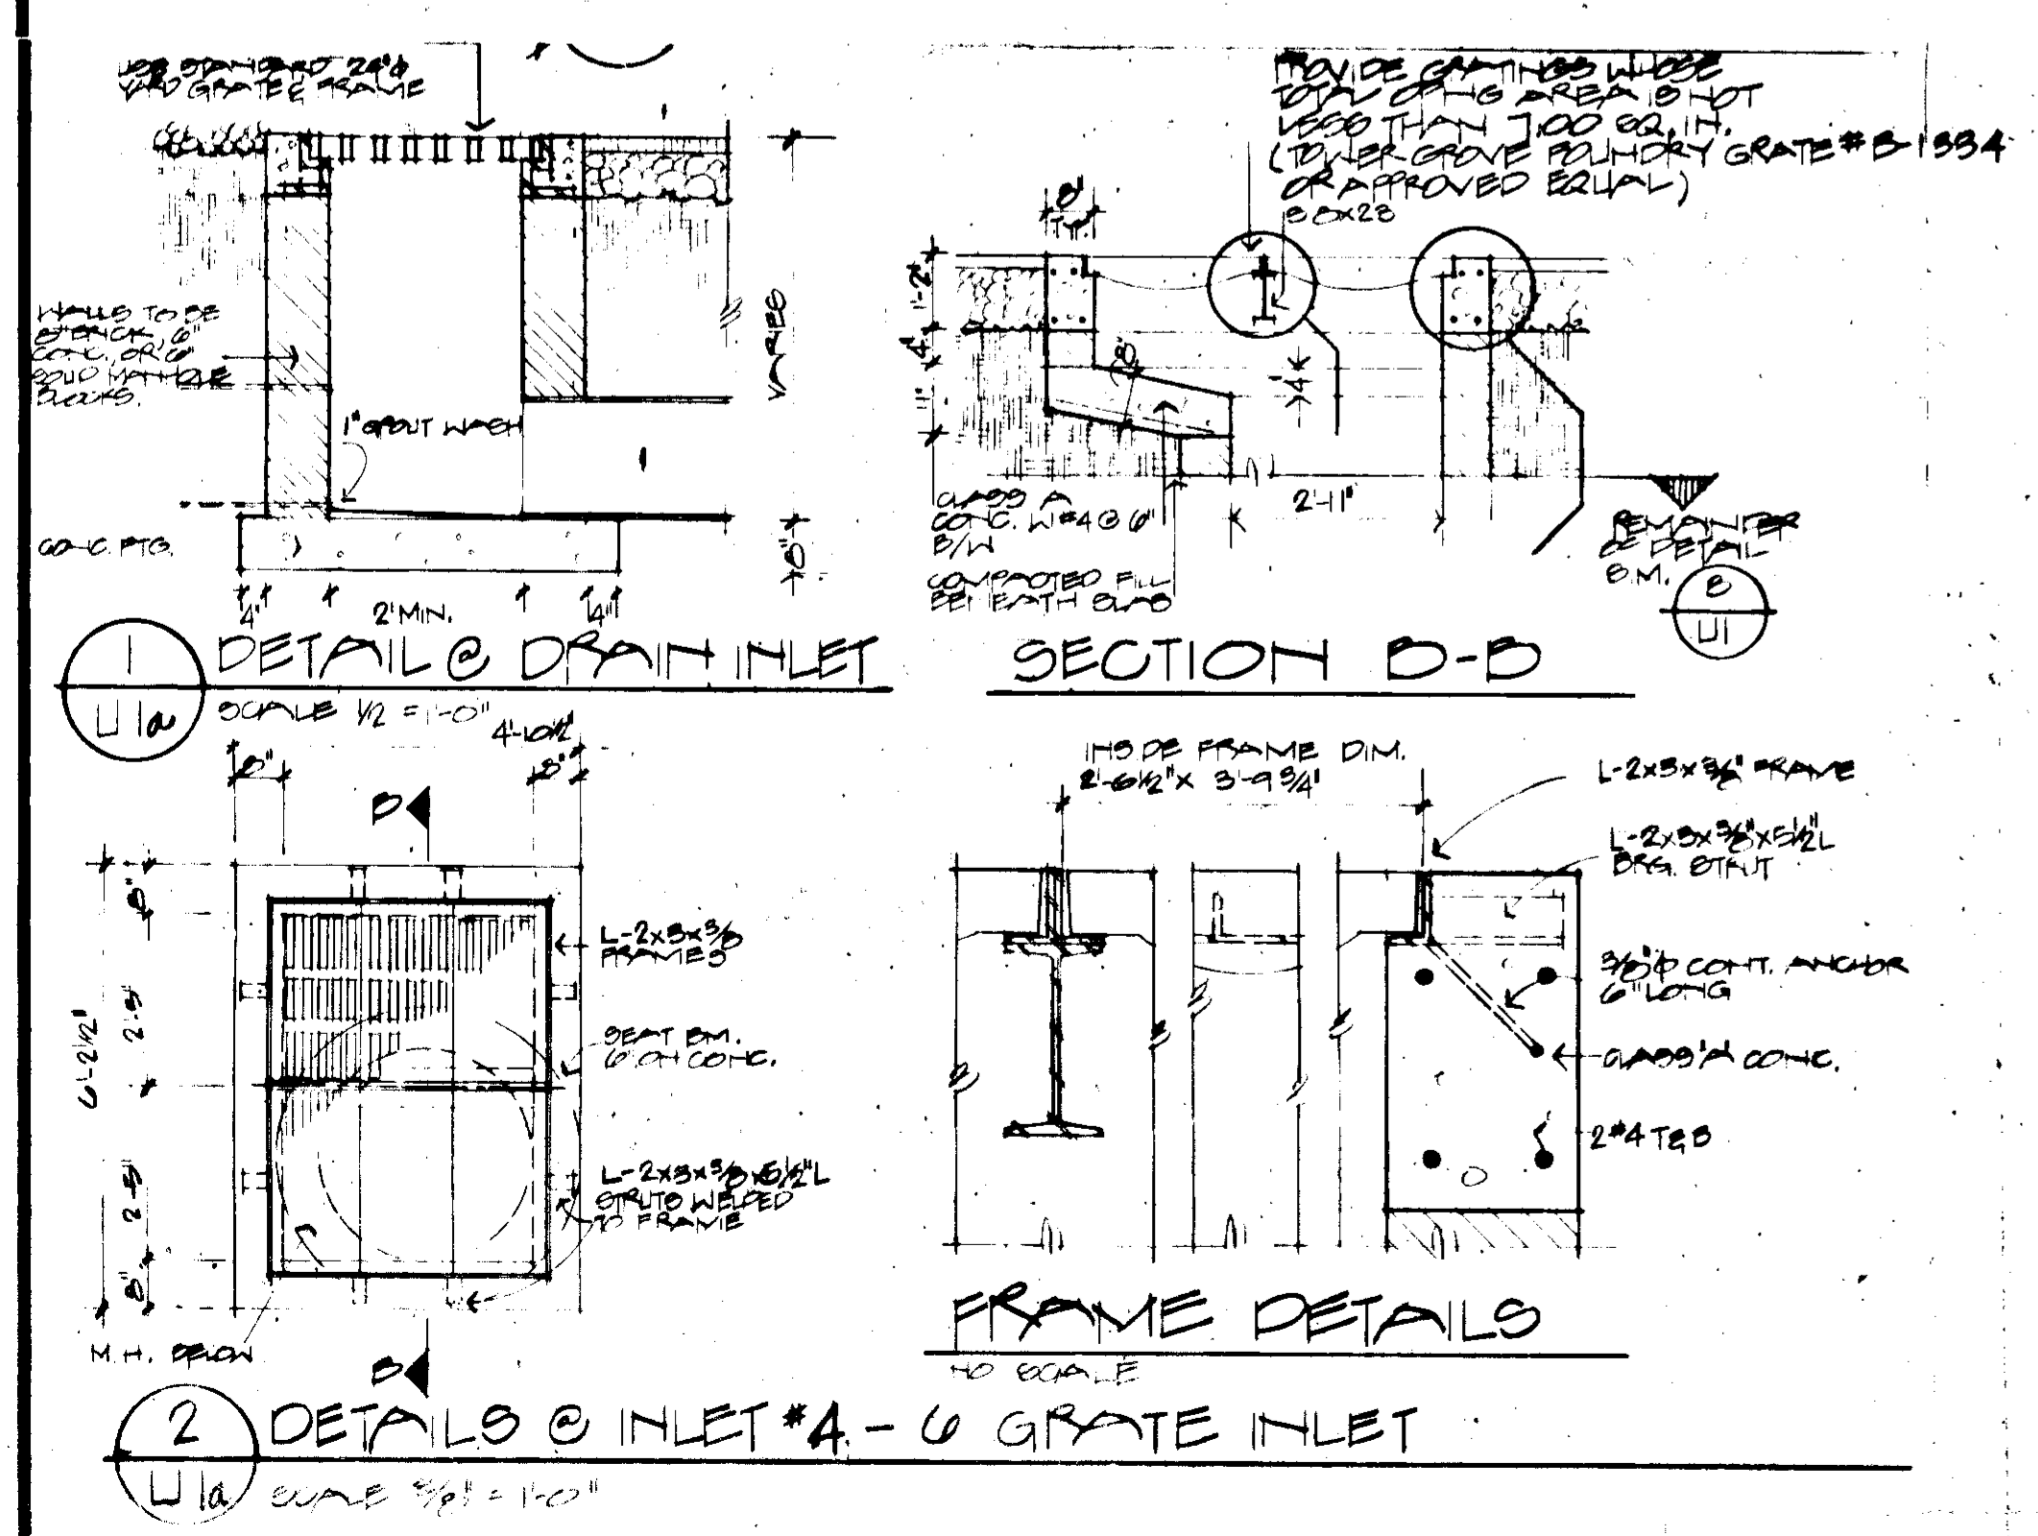 USE STANDARD 24"ϕ
YARD GRATE & FRAME
WALLS TO BE
8" BRICK, 6"
CONC. OR 6"
SOLID MANHOLE
BLOCKS.
1" GROUT WASH
VARIES
CONC. FTG.
8"
4"
2' MIN.
4"
1
U1a
DETAIL @ DRAIN INLET
SCALE 1/2 = 1'-0"
PROVIDE GRATINGS WHOSE
TOTAL OP'NG AREA IS NOT
LESS THAN 700 SQ. IN.
(TOWER GROVE FOUNDRY GRATE #B-1334
OR APPROVED EQUAL)
S8x23
8"
TYP.
1'-2"
4"
11"
8"
4"
2'-11"
CLASS A
CONC. W #4 @ 6"
B/W
COMPACTED FILL
BENEATH SLAB
REMAINDER
OF DETAIL
SIM.
8
U1
SECTION B-B
4'-10 1/2"
8"
8"
B
8"
2'-5"
6'-2 1/2"
2'-5"
8"
L-2x3x3/8
FRAMES
SEAT BM.
6" ON CONC.
L-2x3x3/8x5 1/2" L
STRUTS WELDED
TO FRAME
M.H. BELOW
B
INSIDE FRAME DIM.
2'-6 1/2" x 3'-9 3/4"
L-2x3x3/8" FRAME
L-2x3x3/8"x5 1/2" L
BRG. STRUT
3/8"ϕ CONT. ANCHOR
6" LONG
CLASS 'A' CONC.
2 #4 T&B
FRAME DETAILS
NO SCALE
2
U1a
DETAILS @ INLET #4 - 6 GRATE INLET
SCALE 3/8" = 1'-0"